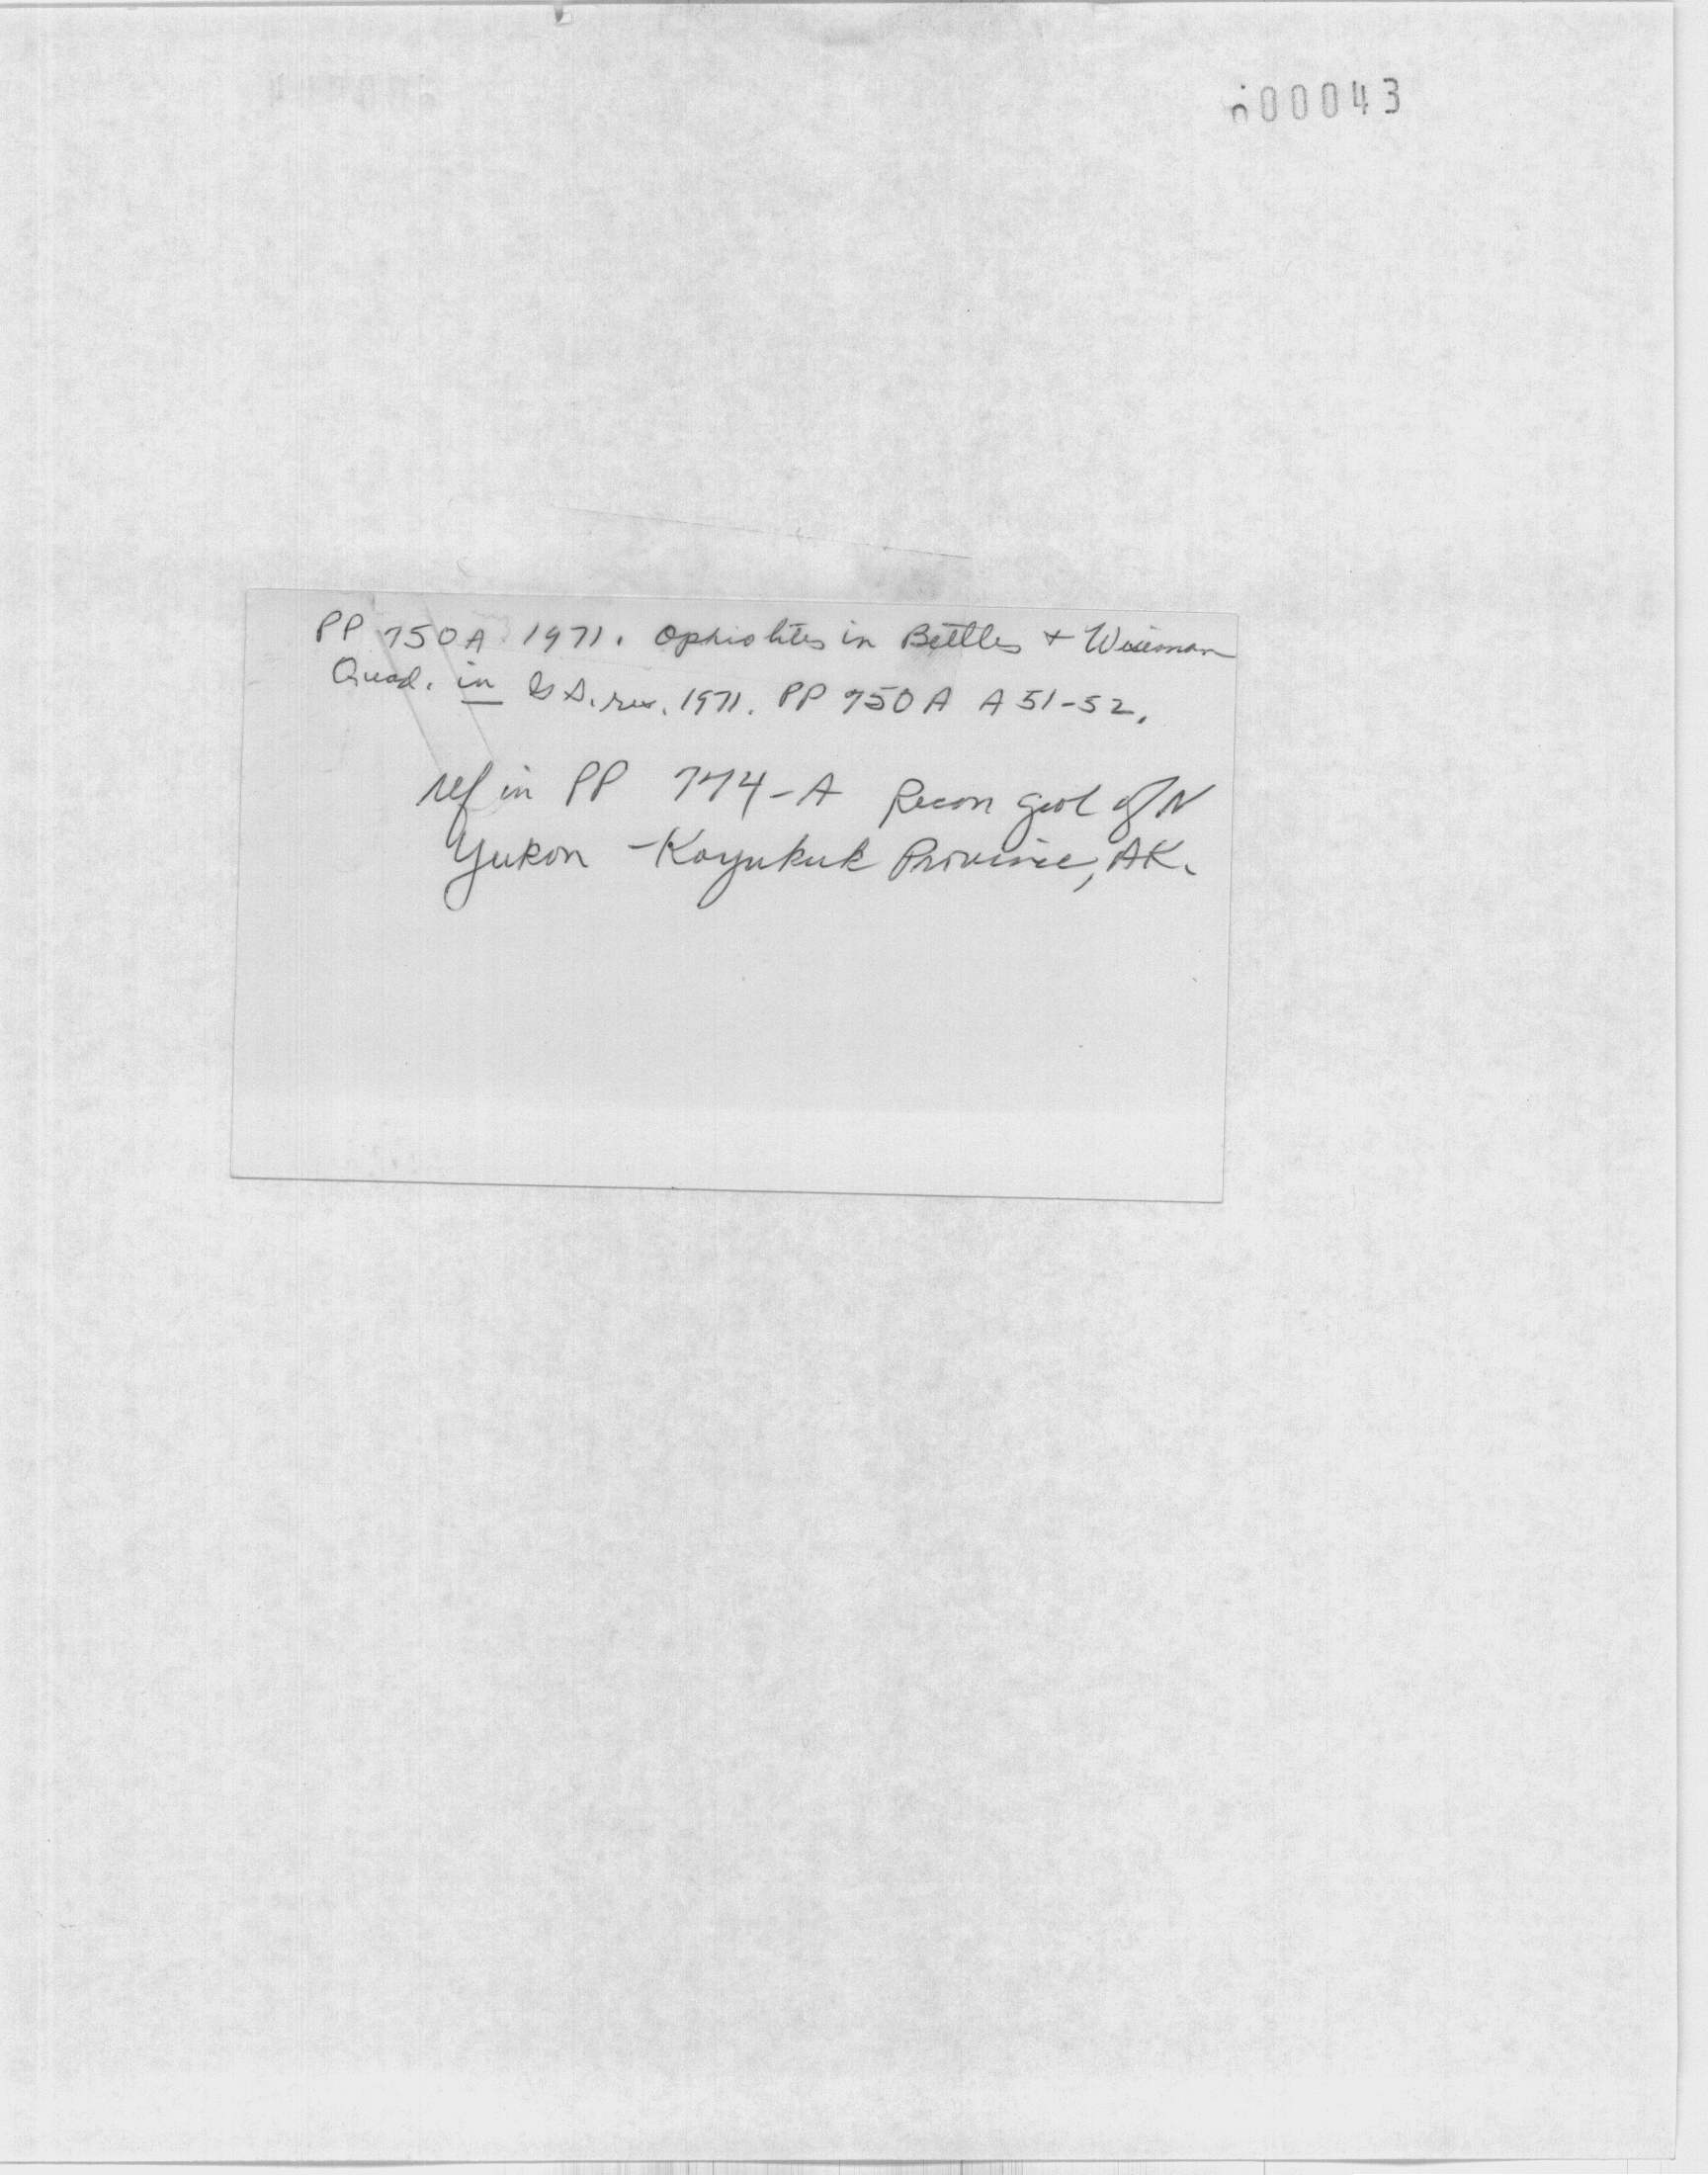 000043
PP 750A 1971. Ophiolites in Bettles + Wiseman
Quad. in G S. res. 1971. PP 750A A 51-52.
ref in PP 774-A Recon geol of N
Yukon - Koyukuk Province, AK.